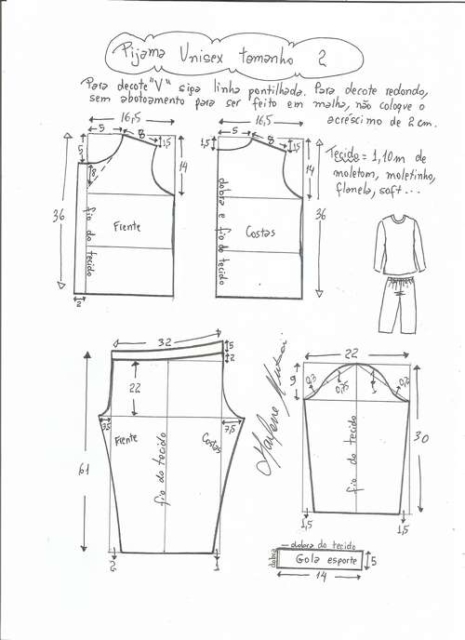 Pijama Unisex tamanho 2
Para decote "V" siga linha pontilhada. Para decote redondo,
sem abotoamento para ser feito em malha, não coloque o
acréscimo de 2 cm.
16,5
16,5
5 8 1,5
5 8
1,5 1,5
5
8
14
14
36
36
Frente
Costas
fio do tecido
dobra e fio do tecido
2
Tecido = 1,10 m de
moletom, moletinho,
flanela, soft...
32
5
2
22
3,5
7,5
Frente
Costas
fio do tecido
61
Marlene Mukai
22
9
0,75
30
fio do tecido
1,5
1,5
dobra do tecido
dobra
Gola esporte
5
14